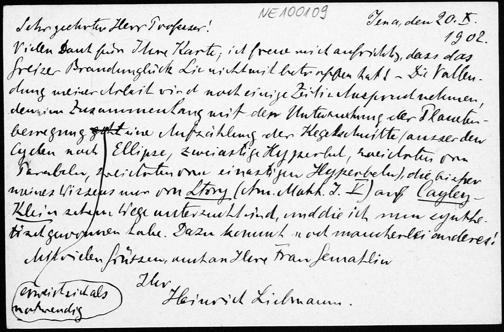 NE100109
Jena, den 20. X.
1902.
Sehr geehrter Herr Professor!
Vielen Dank für Ihre Karte; ich freue mich aufrichtig, dass das
Greizer Brandunglück Sie nicht mit betroffen hat! – Die Vollen-
dung meiner Arbeit wird noch einige Zeit in Anspruch nehmen,
denn im Zusammenhang mit der Untersuchung der Planeten-
bewegung eine Aufzählung der Kegelschnitte (ausser den
Cyclen noch Ellipse, zweiastige Hyperbel, zwei Arten von
Parabeln, zwei Arten von einastigen Hyperbeln), die bisher
meines Wissens nur von Story (Am. Math. J. V) auf Cayley-
Klein schem Wege untersucht sind, und die ich nun synthe-
tisch gewonnen habe. Dazu kommt noch mancherlei anderes!
Mit vielen Grüssen, auch an Ihre Frau Gemahlin
Ihr
Heinrich Liebmann.
erweist sich als
notwendig